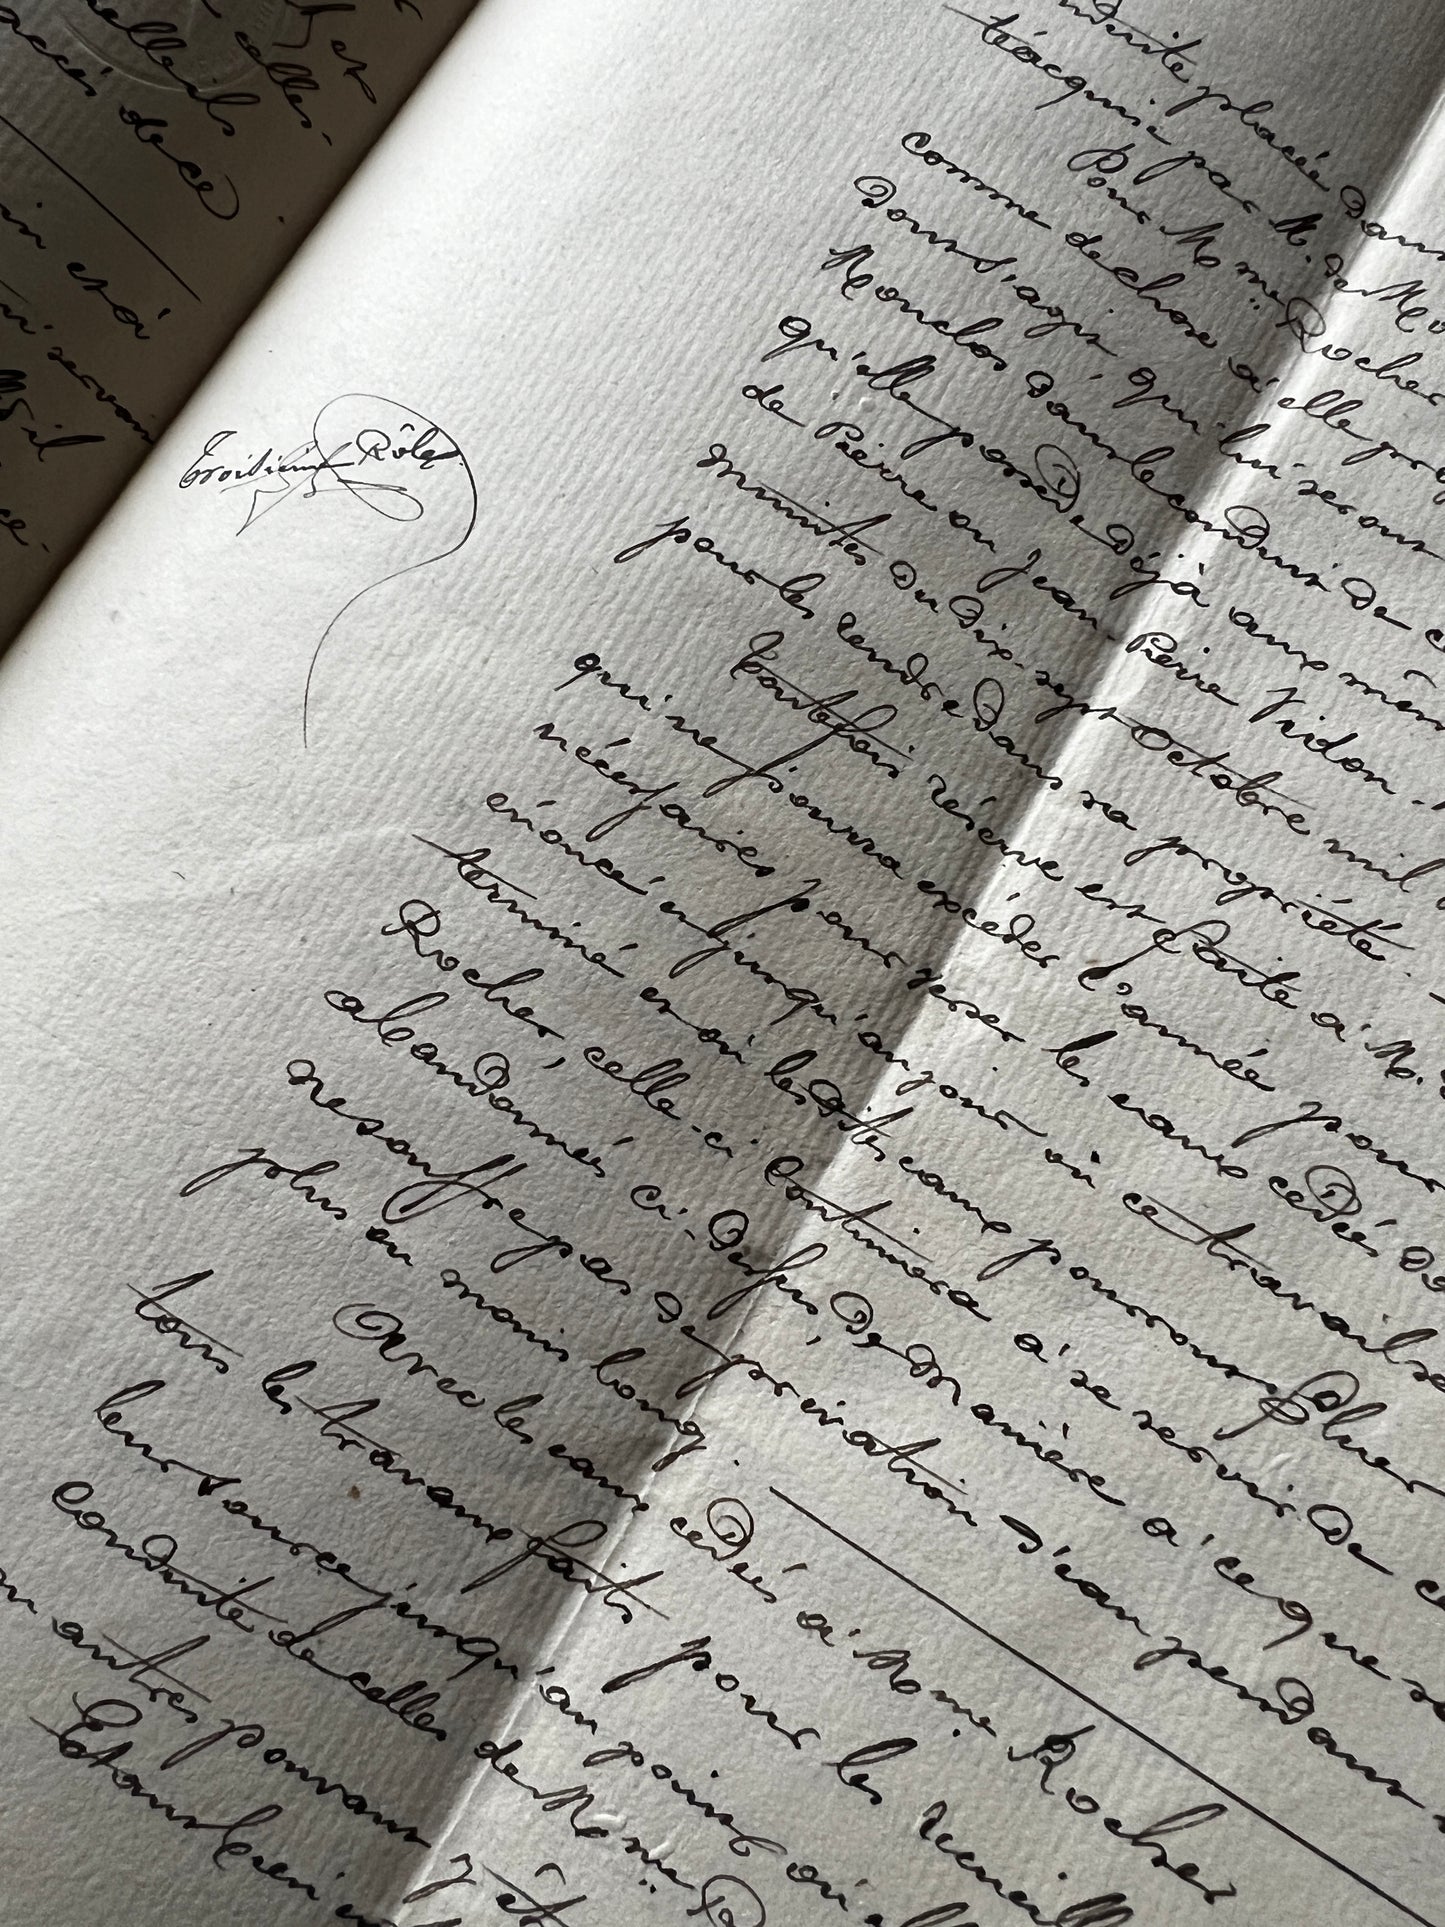 et
celles
celles.
accès de ce
est à
servir
Troisième Rôle
conduite placée dans
t'acquis par M. de Mo
Pour Mme Rocher
comme de chose à elle pro
Dont s'agit, qui lui seront
Monclos dans le conduit de c
qu'elle possède déjà aux mêm
de Pierre ou Jean-Pierre Vidon
minutes du dix-sept Octobre mil
pour les rendre dans sa propriété.
Toutefois réserve est faite à M.
qui ne pourra excéder l'année pour
nécessaires pour verser les eaux cédées
énoncé en jusqu'au jour où ce travail se
terminé et où les dites eaux pourront
Rocher, celle-ci continuera à se servir de c
abandonnés ci-dessus, de manière à ce que
ne souffre pas de privation d'eau pendant
plus ou moins long.
Avec les eaux cédées à Mme Rocher
tous les travaux faits pour les
leur source jusqu'au point où
conduite de celles de Mme R
ou autres pouvant y êt
Etant bien